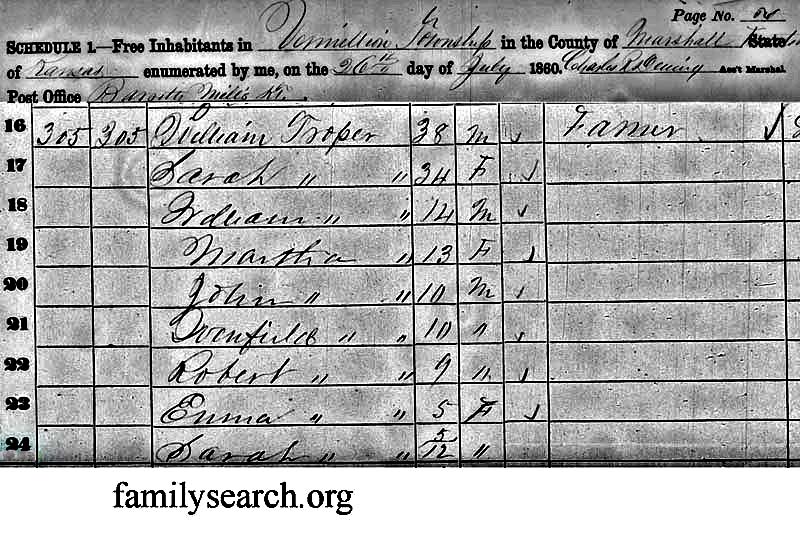 Page No.
SCHEDULE 1.—Free Inhabitants in Vermillion Township in the County of Marshall State
of Kansas enumerated by me, on the 26th day of July 1860. Charles Ass't Marshal.
Post Office Mills
16 305 305 William Troper 38 M Farmer
17 Sarah " " 34 F
18 William " " 14 M
19 Martha " 13 F
20 John " " 10 M
21 " " 10 "
22 Robert " " 9 "
23 Emma " " 5 F
24 Sarah " " 5/12 "
familysearch.org